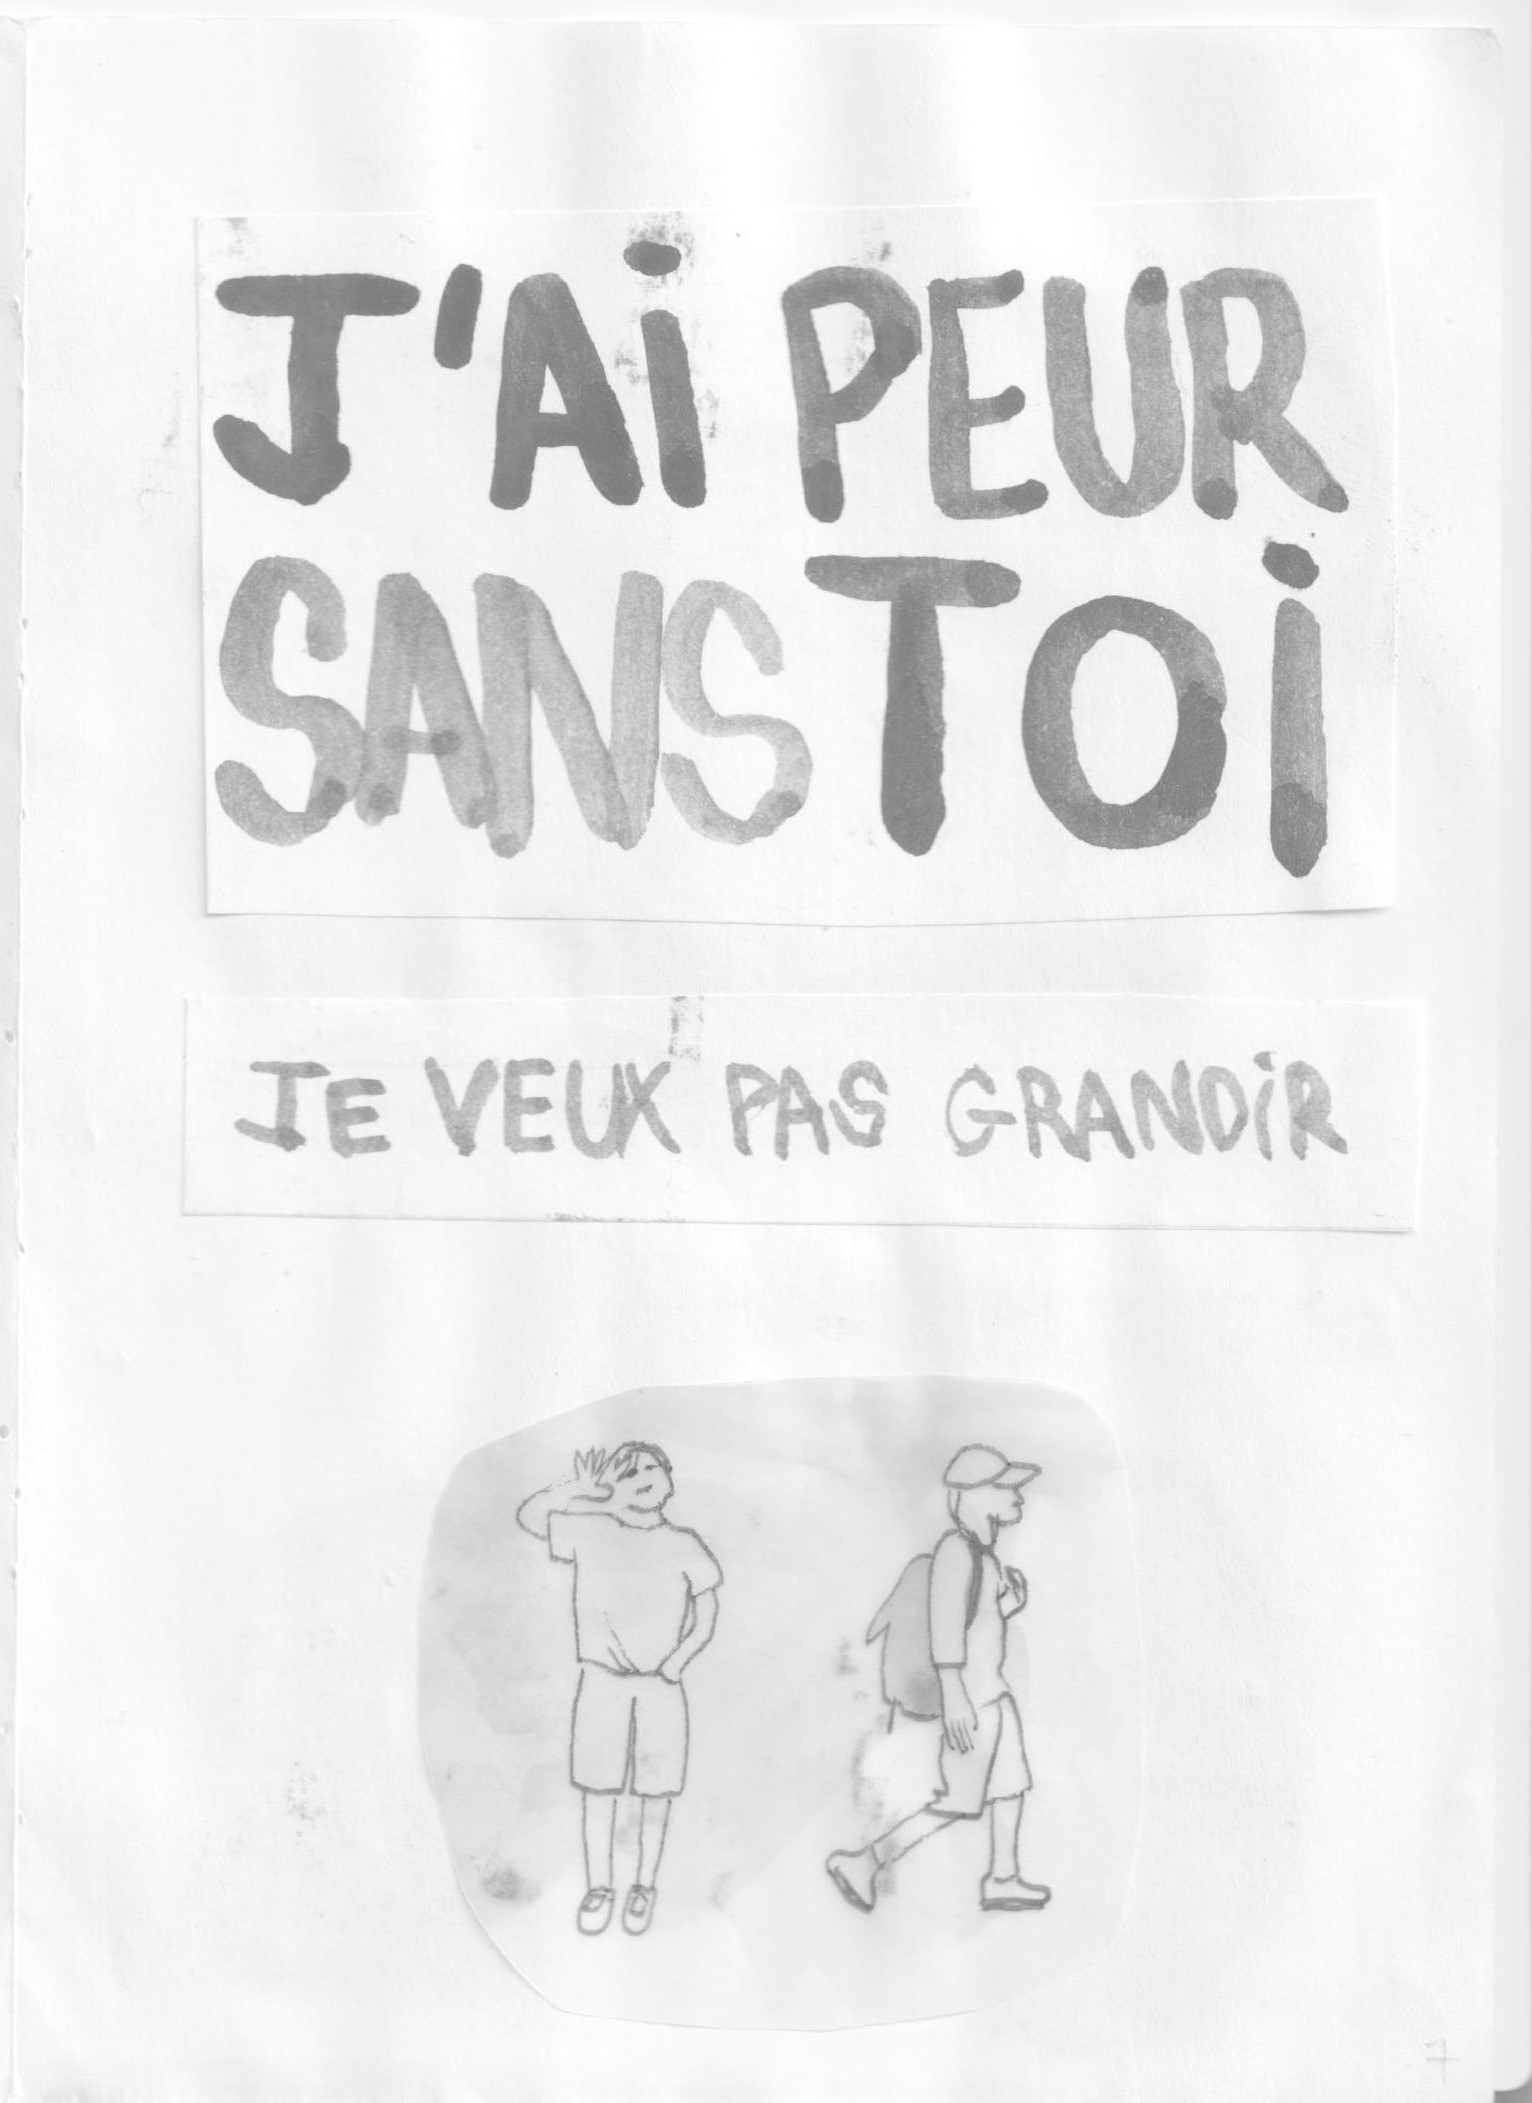 J'Ai PEUR
SANS TOi
JE VEUX PAS GRANDiR
7